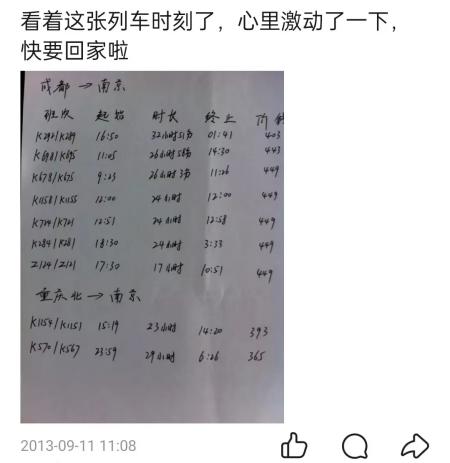 看着这张列车时刻了，心里激动了一下，
快要回家啦
成都→南京
班次 起始 时长 终止 价钱
K292/K289 16:50 32小时51分 01:41 403
K698/K695 11:05 26小时58分 14:30 443
K678/K675 9:23 26小时3分 11:26 449
K1158/K1155 12:00 24小时 12:00 449
K724/K721 12:51 24小时 12:58 449
K284/K281 18:30 24小时 3:33 449
Z124/Z121 17:30 17小时 10:51 449
重庆北→南京
K1154/K1151 15:19 23小时 14:20 393
K570/K567 23:59 29小时 6:26 365
2013-09-11 11:08